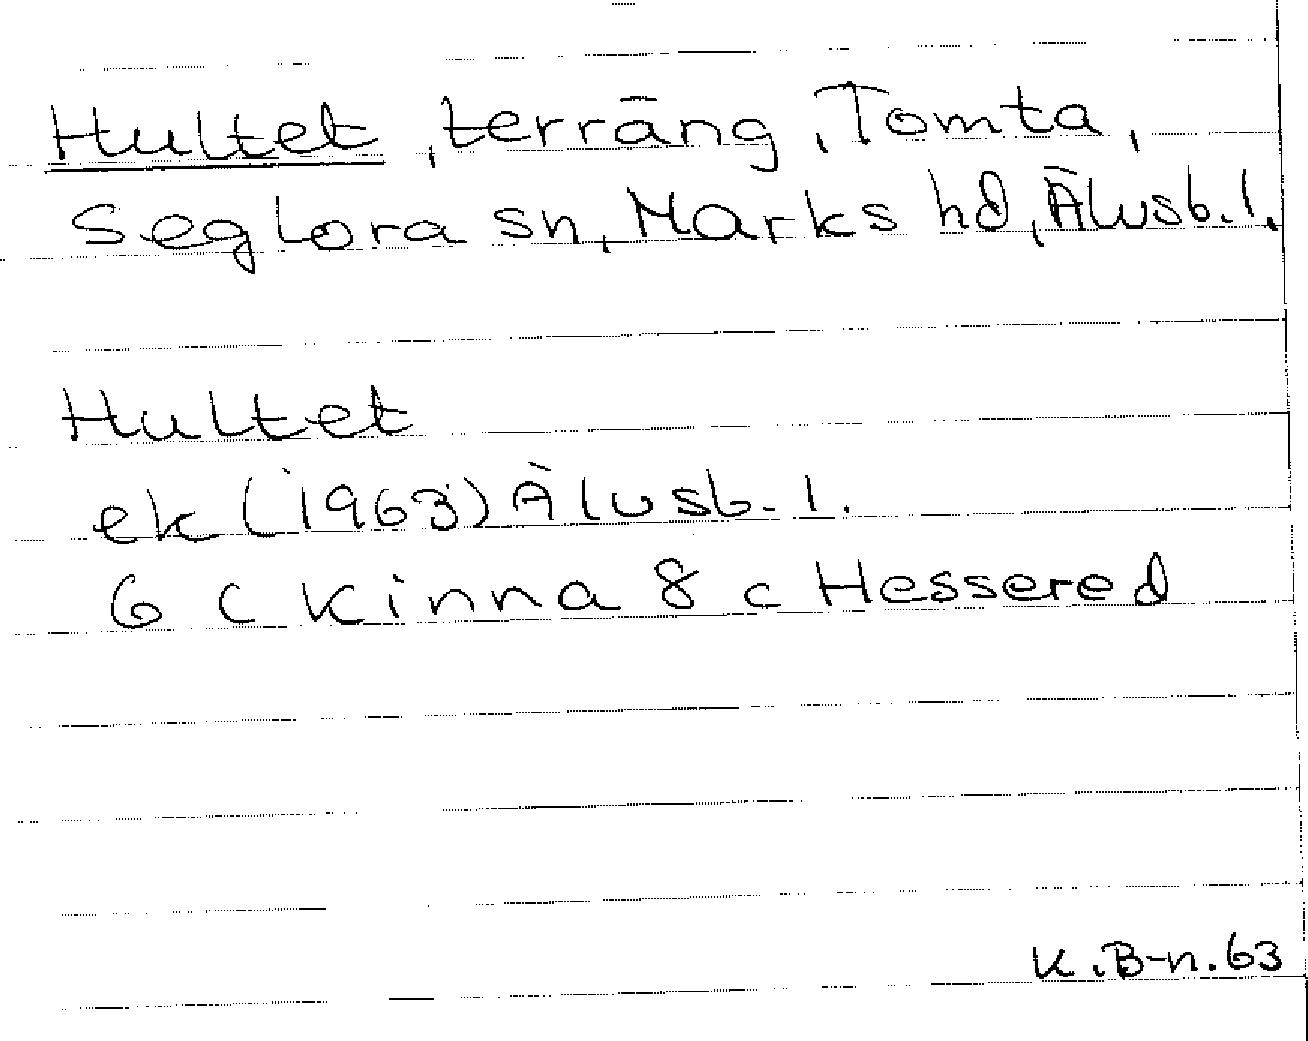 Hultet, terräng, Tomta,
Seglora sn, Marks hd, Älvsb. l.
Hultet
ek (1963) Älvsb. l.
6 c Kinna 8 c Hessered
K.B-n. 63